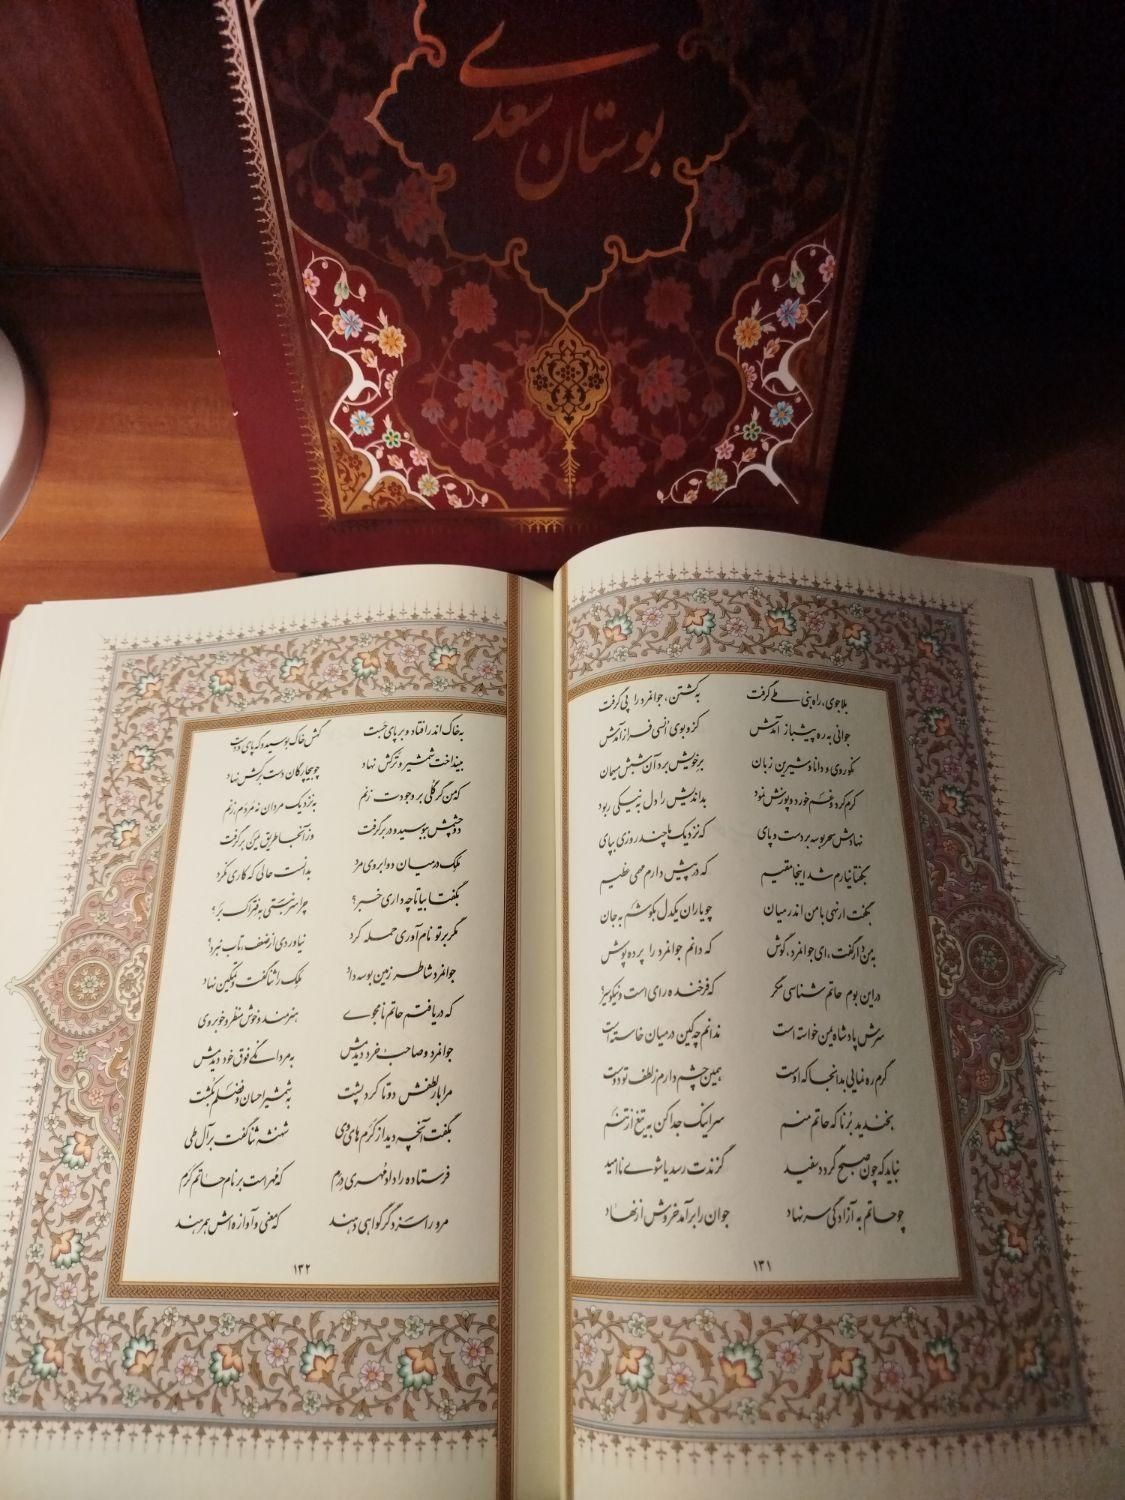 بوستان سعدی
بلاجوی، راه بنی طی گرفت به کشتن، جوانمرد را پی گرفت
جوانی به ره پیشباز آمدش کزو بوی انسی فراز آمدش
نکوروی و دانا و شیرین زبان بر خویش برد آن شبش میهمان
کرم کرد و غم خورد و پوزش نمود بداندیش را دل به نیکی ربود
نهادش سحر بوسه بر دست و پای که نزدیک ما چند روزی بپای
بگفتا نیارم شد اینجا مقیم که در پیش دارم مهمی عظیم
بگفت ار نهی با من اندر میان چو یاران یکدل بکوشم به جان
به من دار گفت، ای جوانمرد، گوش که دانم جوانمرد را پرده پوش
در این بوم حاتم شناسی مگر که فرخنده رای است و نیکو سیر؟
سرش پادشاه یمن خواسته است ندانم چه کین در میان خاسته است
گرم ره نمایی بدانجا که اوست همین چشم دارم ز لطف تو دوست
بخندید برنا که حاتم منم سر اینک جدا کن به تیغ از تنم
نباید که چون صبح گردد سفید گزندت رسد یا شوی ناامید
چو حاتم به آزادگی سر نهاد جوان را برآمد خروش از نهاد
۱۳۱
به خاک اندر افتاد و بر پای جست گهش خاک بوسید و گه پای و دست
بینداخت شمشیر و ترکش نهاد چو بیچارگان دست بر کش نهاد
که من گر گلی بر وجودت زنم به نزدیک مردان نه مردم، زنم
دو چشمش ببوسید و در بر گرفت وز آنجا طریق یمن برگرفت
ملک در میان دو ابروی مرد بدانست حالی که کاری نکرد
بگفت بیا تا چه داری خبر؟ چرا سر نبستی به فتراک بر؟
مگر بر تو نام آوری حمله کرد نیاوردی از ضعف، تاب نبرد؟
جوانمرد شاطر زمین بوسه داد ملک را ثنا گفت و تمکین نهاد
که دریافتم حاتم نامجوی هنرمند و خوش منظر و خوبروی
جوانمرد و صاحب خرد دیدمش به مردانگی فوق خود دیدمش
مرا بار لطفش دو تا کرد پشت به شمشیر احسان و فضلم بکشت
بگفت آنچه دید از کرم های وی شهنشه ثنا گفت بر آل طی
فرستاده را داد مهری درم که مهر است بر نام حاتم کرم
مر او را سزد گر گواهی دهند که معنی و آوازه اش همرهند
۱۳۲